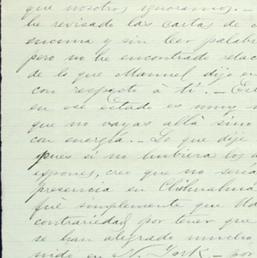 que nosotros ignoramos. —
he revisado las cartas de
encima y sin leer palabra
pero no he encontrado
de lo que Manuel dijo en
con respecto a ti. —
en ese estado es muy
que no vayas allá sino
con energía. — Lo que dije
pues si no hubiera los
creo que no seria
presencia en
fué simplemente que
contrariedad, por tener que
se han alegrado mucho
en N. York — por